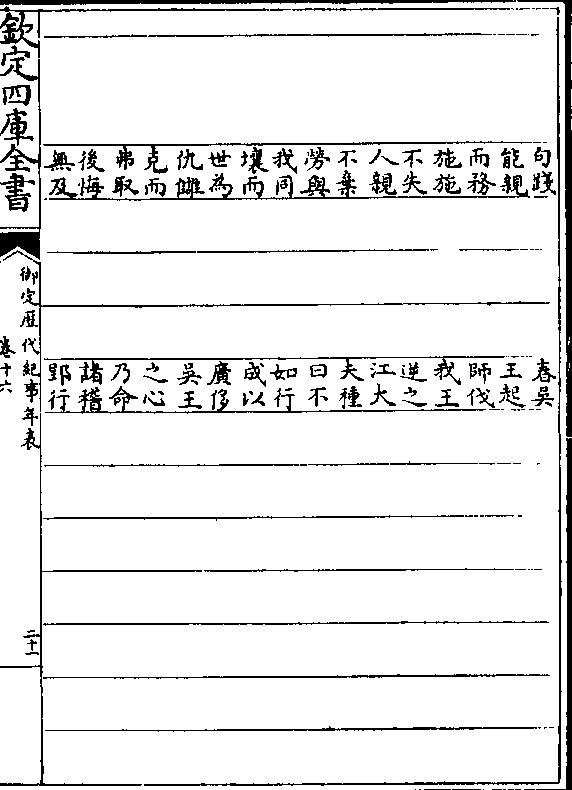 句踐
能親
而務
施施
不失
人親
不棄
勞與
我同
壤而
世為
仇讎
克而
弗取
後悔
無及
春吳
王起
師伐
我王
逆之
江大
夫種
曰不
如行
成以
廣侈
吳王
之心
乃命
諸稽
郢行
欽定四庫全書
御定歴代紀事年表
卷十六
二十一